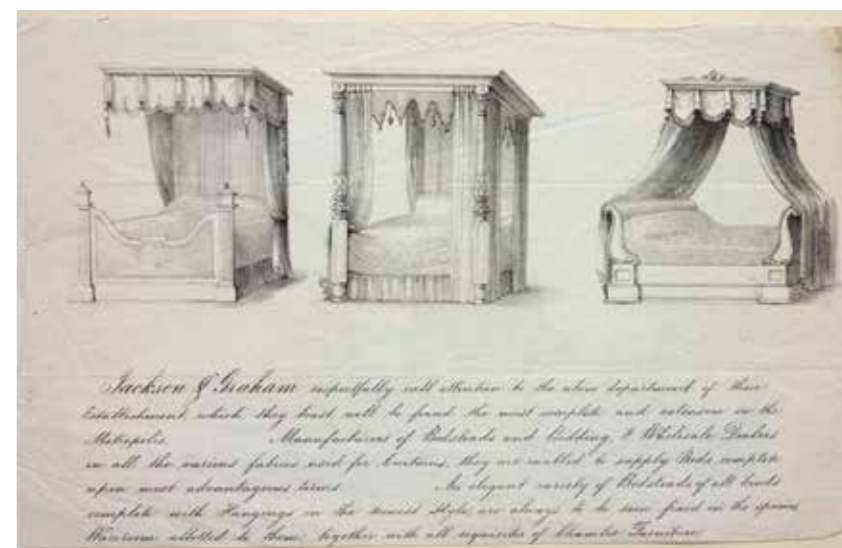 Jackson & Graham respectfully call attention to the above department of their
Establishment, which, they trust, will be found the most complete and extensive in the
Metropolis. Manufacturers of Bedsteads and Bedding, & Wholesale Dealers
in all the various fabrics used for Curtains, they are enabled to supply Beds complete
upon most advantageous terms. An elegant variety of Bedsteads of all kinds
complete with Hangings in the newest style, are always to be seen fixed in the spacious
Warerooms allotted to them; together with all requisites of Chamber Furniture